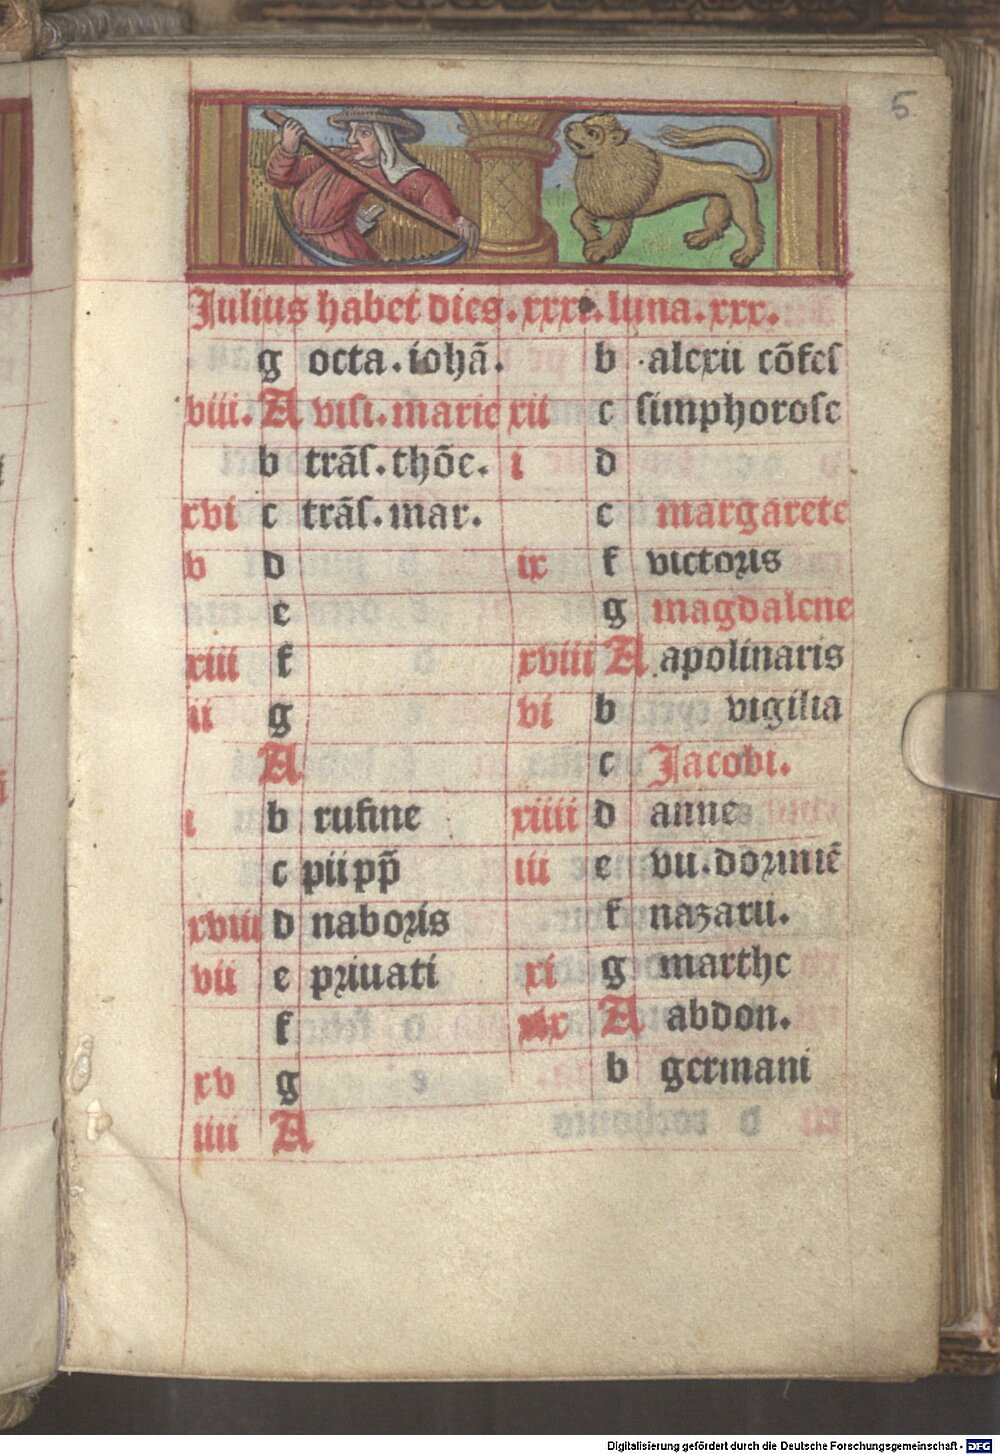 5
Julius habet dies.xxxi.luna.xxx.
g octa.iohã.
viii. A visi.marie
b trãs.thõe.
xvi c trãs.mar.
v d
e
xiii f
ii g
A
i b rufine
c pii pp̃
xviii d naboris
vii e priuati
f
xv g
iiii A
b alexii cõfes
xii c simphorose
i d
e margarete
ix f victoris
g magdalene
xviii A apolinaris
vi b vigilia
c Jacobi.
xiiii d anne
iii e vii.dormiẽ
f nazarii.
xi g marthe
xix A abdon.
b germani
Digitalisierung gefördert durch die Deutsche Forschungsgemeinschaft - DFG